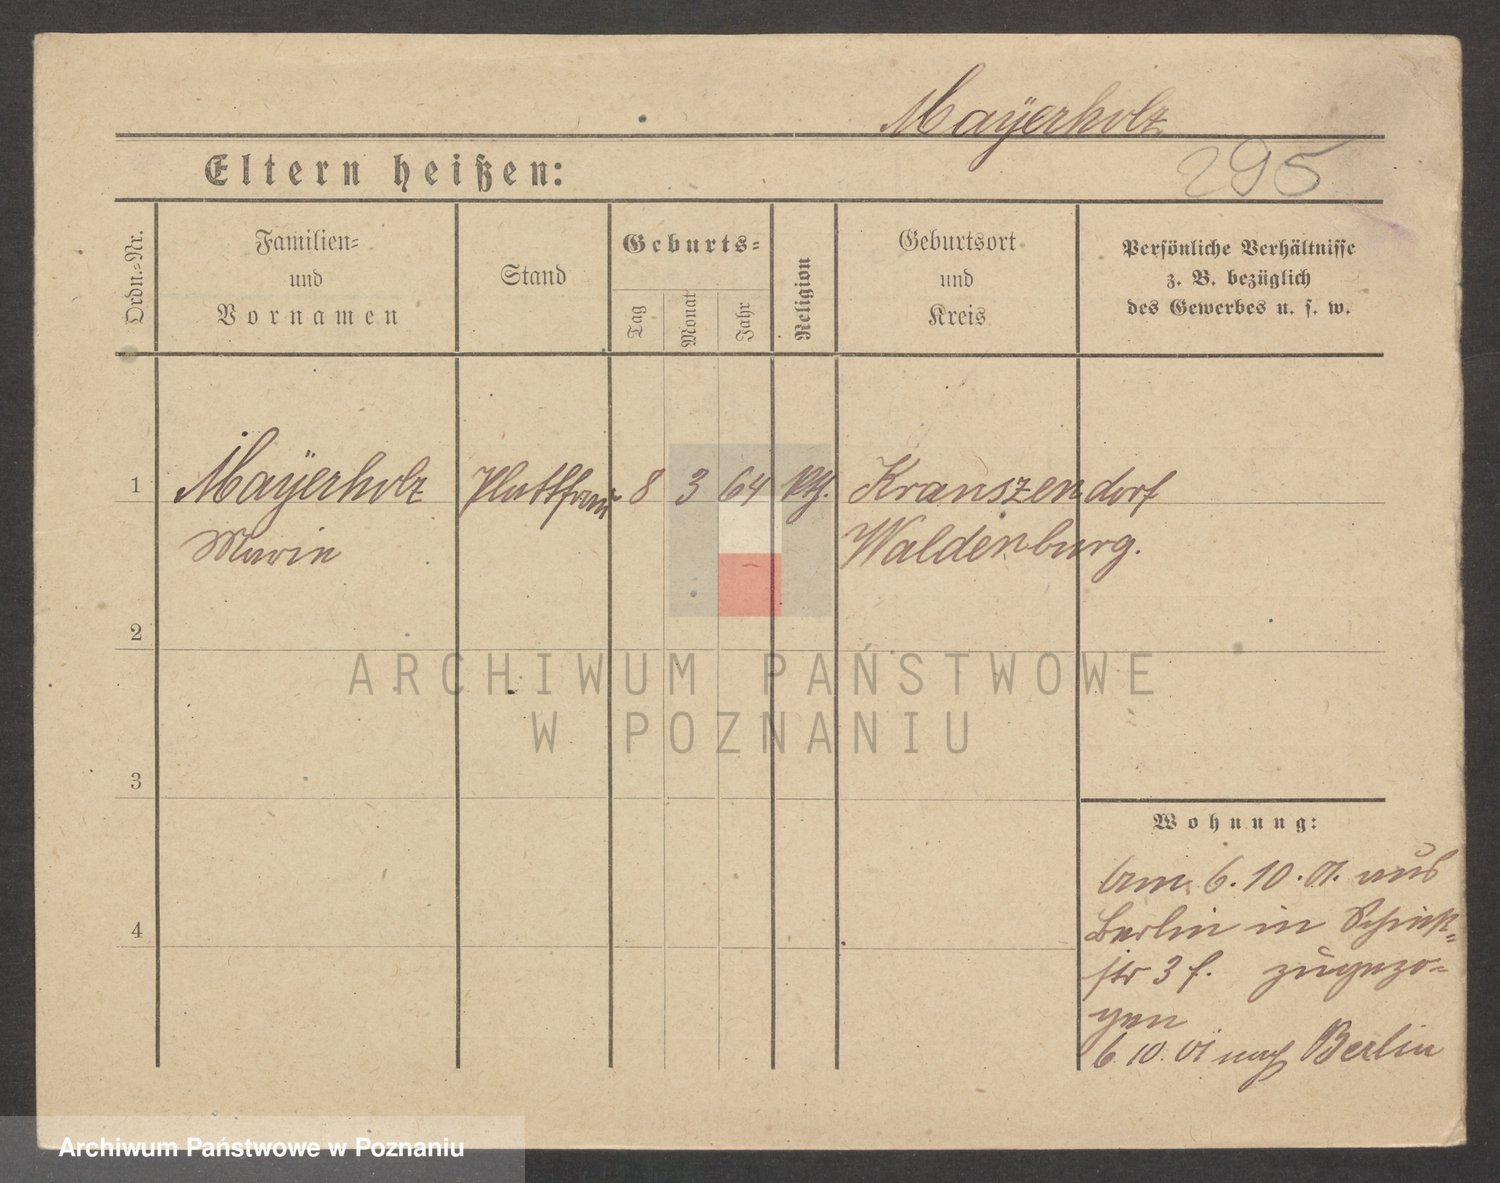 Mayerholz
295
Eltern heißen:
Ordn.-Nr.
Familien-
und
Vornamen
Stand
Geburts-
Tag
Monat
Jahr
Religion
Geburtsort
und
Kreis
Persönliche Verhältnisse
z. B. bezüglich
des Gewerbes u. s. w.
1 Maÿerholz Plattfrau 8 3 64 kth. Kranszendorf
Marie Waldenburg.
2
ARCHIWUM PAŃSTWOWE
W POZNANIU
3
Wohnung:
4
Am 6.10.01. aus
Berlin in
str 3 f. zugezo-
gen
6.10.01 nach Berlin
Archiwum Państwowe w Poznaniu